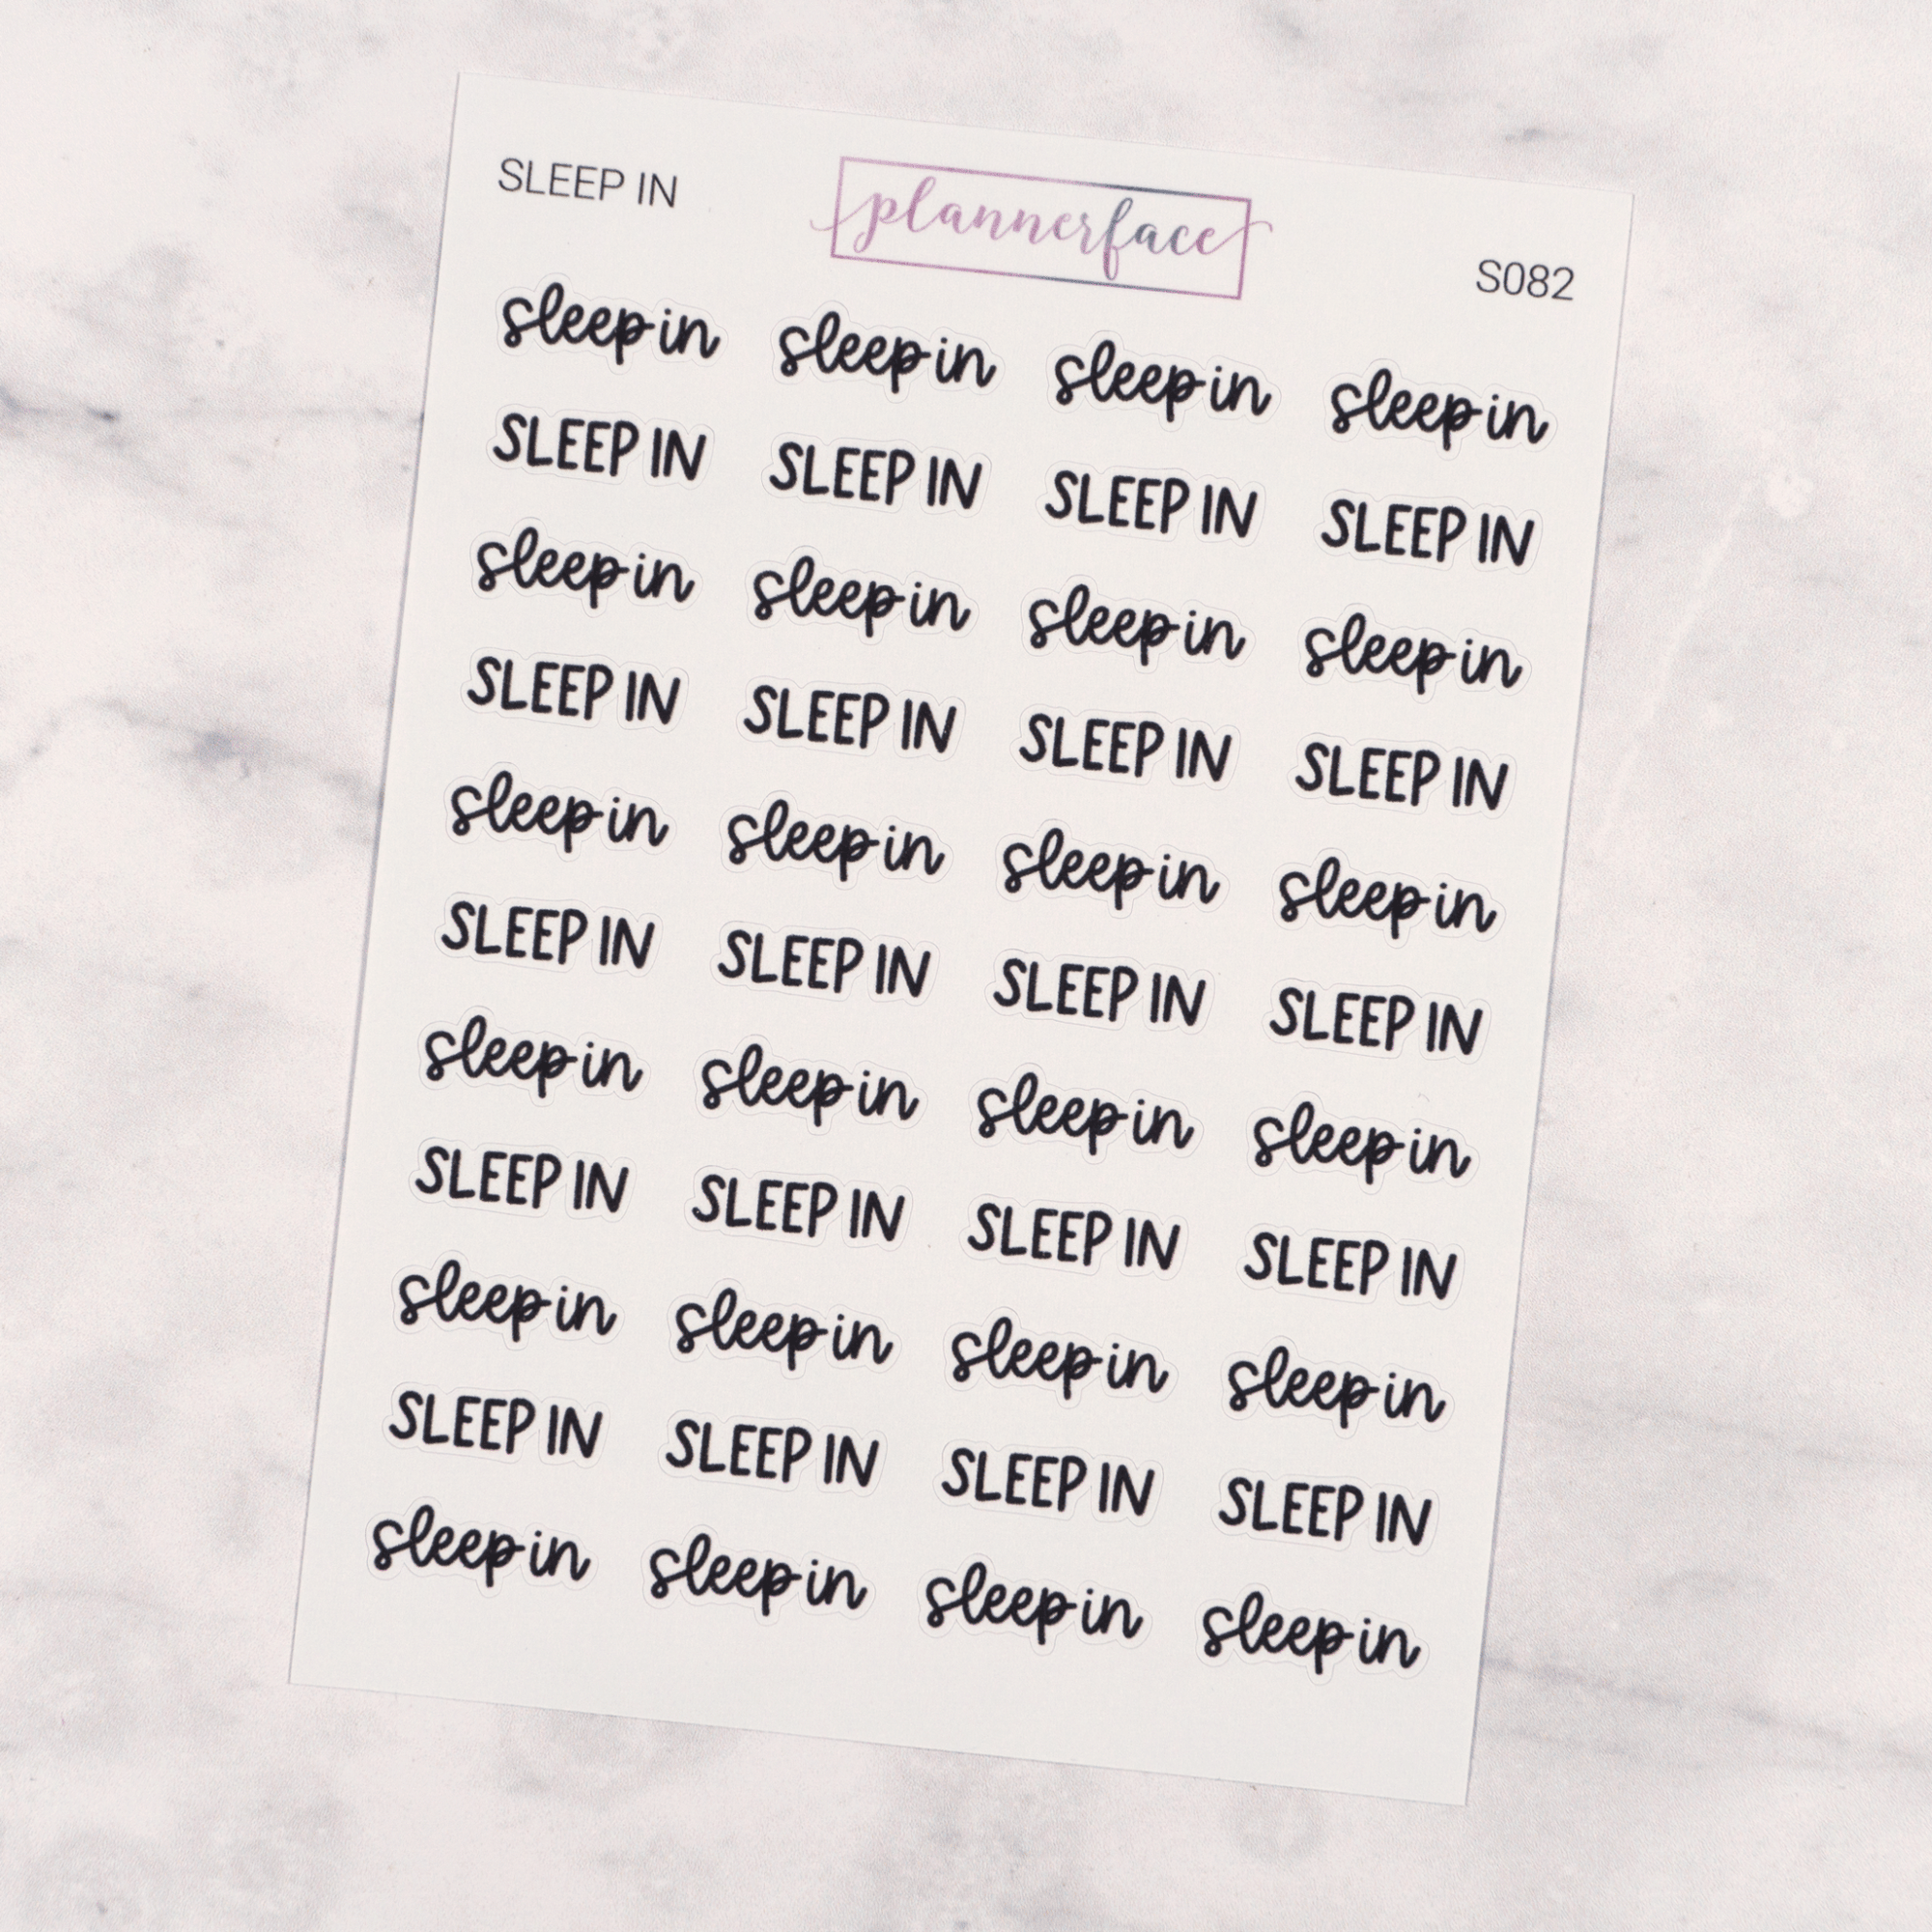 SLEEP IN plannerface S082
sleep in sleep in sleep in sleep in
SLEEP IN SLEEP IN SLEEP IN SLEEP IN
sleep in sleep in sleep in sleep in
SLEEP IN SLEEP IN SLEEP IN SLEEP IN
sleep in sleep in sleep in sleep in
SLEEP IN SLEEP IN SLEEP IN SLEEP IN
sleep in sleep in sleep in sleep in
SLEEP IN SLEEP IN SLEEP IN SLEEP IN
sleep in sleep in sleep in sleep in
SLEEP IN SLEEP IN SLEEP IN SLEEP IN
sleep in sleep in sleep in sleep in